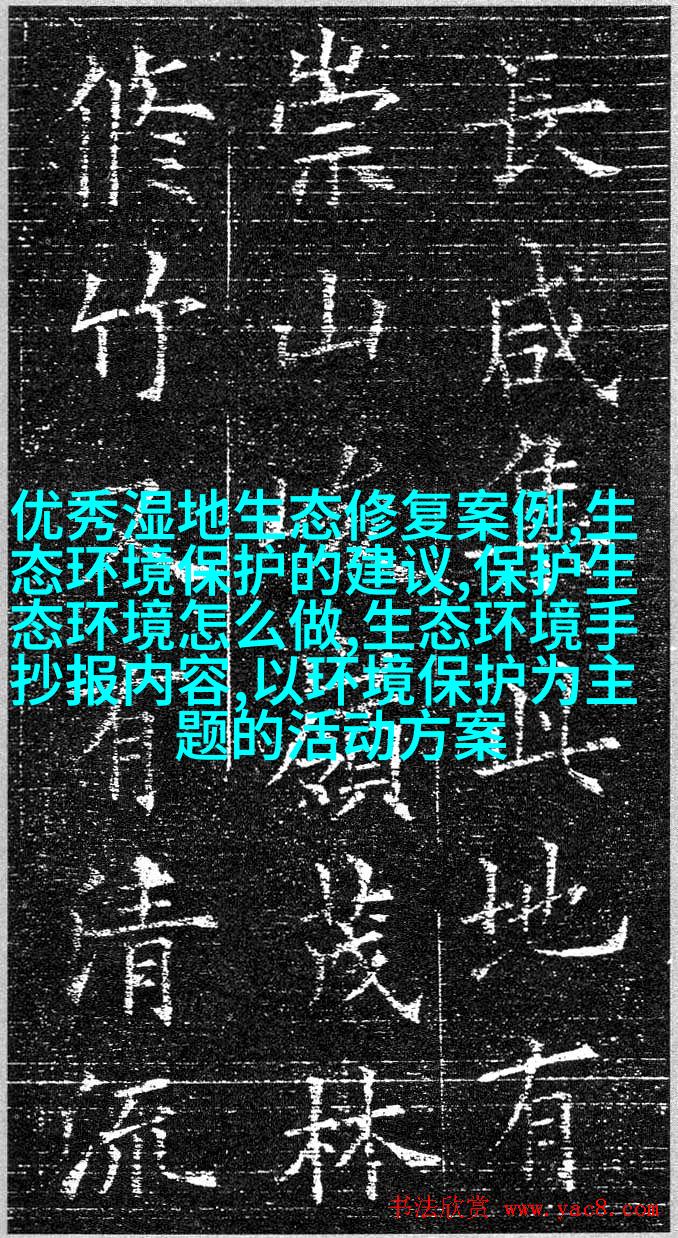 長咸集此地有
崇山峻領茂林
脩竹又有清流
优秀湿地生态修复案例,生
态环境保护的建议,保护生
态环境怎么做,生态环境手
抄报内容,以环境保护为主
题的活动方案
书法欣赏 www.yac8.com